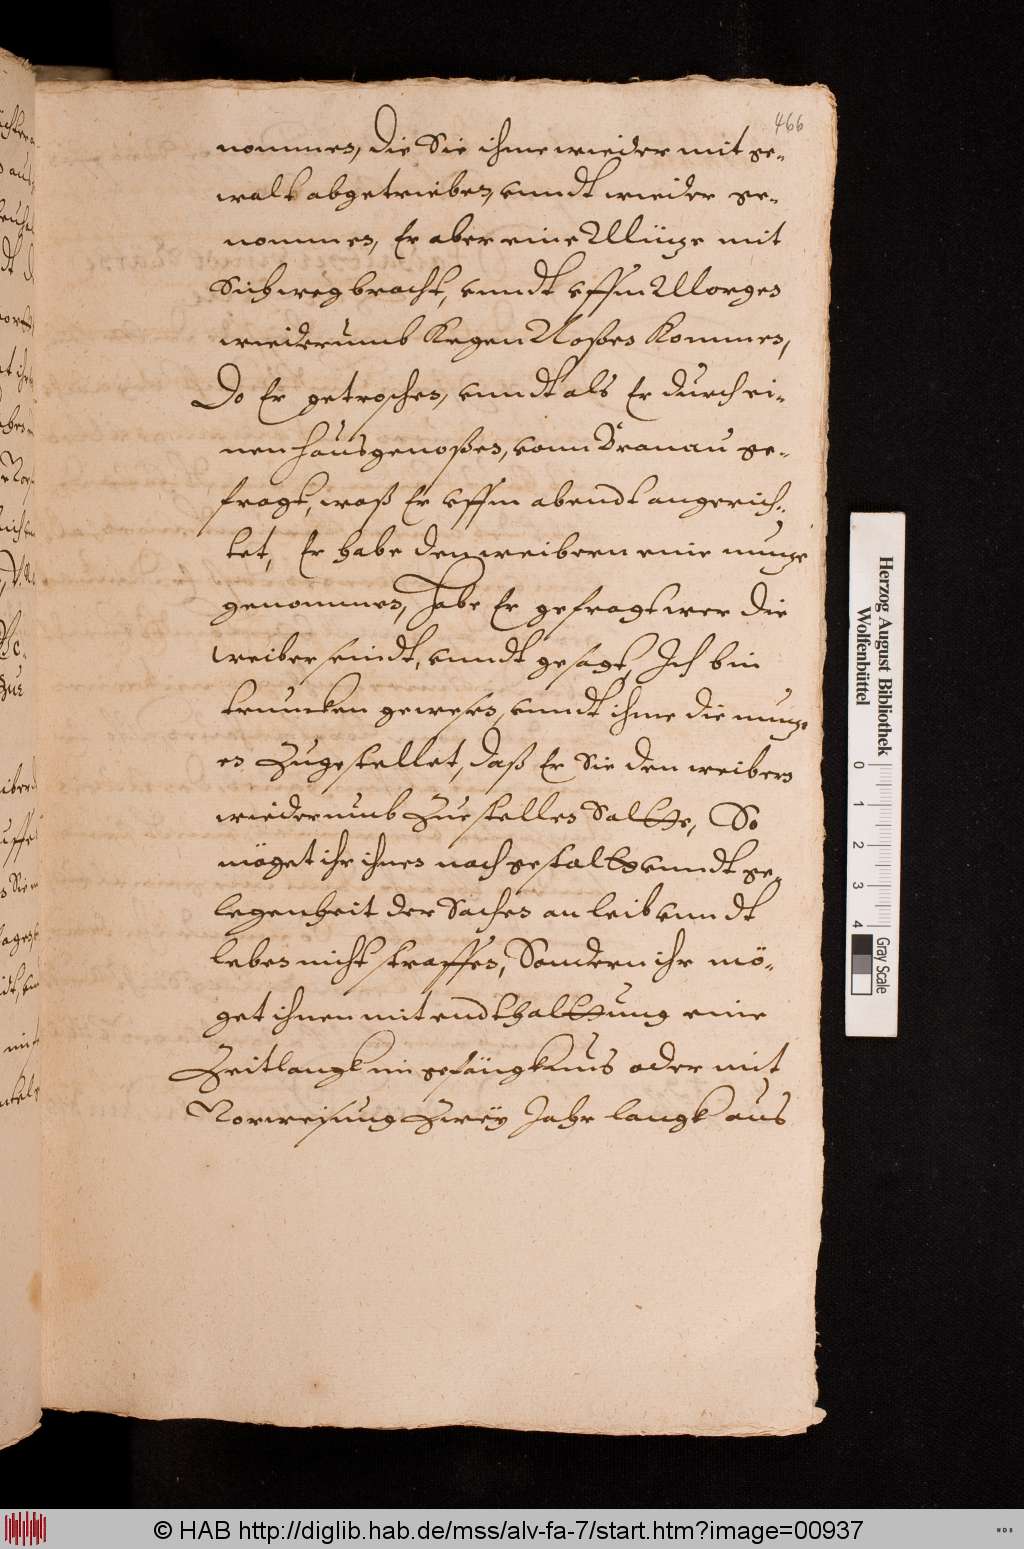 466
nommen, die Sie ihme wieder mit ge-
walt abgetrieben, vnndt wieder ge-
nommen, Er aber eine Mütze mit
Sich weg bracht, vnndt vffm Morgen
wiederumb kegen Noßen kommen,
Do Er getroschen, vnndt als Er durch ei-
nen hausgenoßen, vonn Dranau ge-
fragt, waß Er vffm abendt angerich-
tet, Er habe den weibern eine mutze
genommen, habe Er gefragt wer die
weiber seindt, vnndt gesagt, Ich bin
truncken gewesen, vnndt ihme die mutze
es Zugestellet, daß Er Sie den weibern
wiederumb Zuestellen Soltte, So
möget ihr ihnen nach gestaltt vnndt ge-
legenheit der Sachen an leib vnndt
leben nicht straffen, Sondern ihr mö-
get ihnen mit endthalttung eine
Zeitlangk im gefängknus oder mit
Vorweisung Zweÿ Jahr langk aus
Herzog August Bibliothek
Wolfenbüttel
0 1 2 3 4
Gray Scale
© HAB http://diglib.hab.de/mss/alv-fa-7/start.htm?image=00937